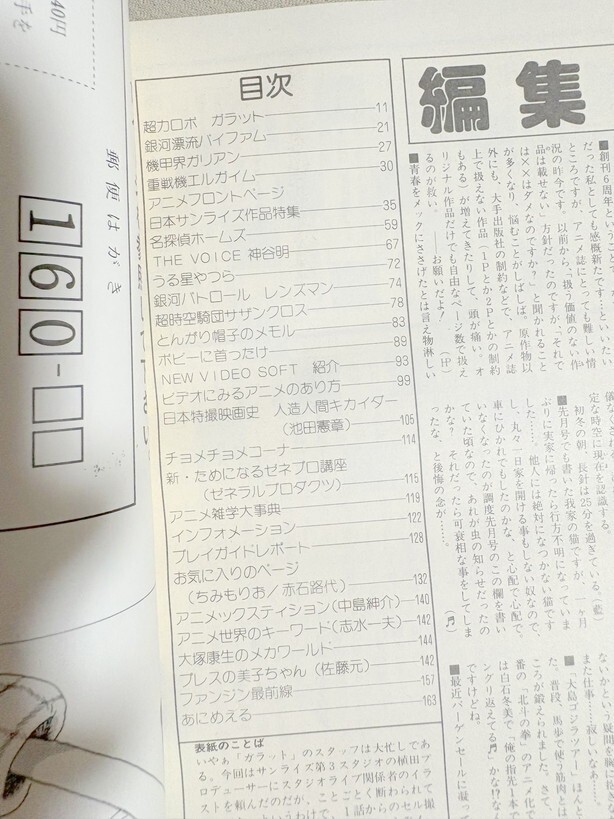 40円
手を
郵便はがき
160-
目次
超力ロボ ガラット 11
銀河漂流バイファム 21
機甲界ガリアン 27
重戦機エルガイム 30
アニメフロントページ
日本サンライズ作品特集 35
名探偵ホームズ 59
THE VOICE 神谷明 67
うる星やつら 72
銀河パトロール レンズマン 74
超時空騎団サザンクロス 78
とんがり帽子のメモル 83
ポピーに首ったけ 89
NEW VIDEO SOFT 紹介 93
ビデオにみるアニメのあり方 99
日本特撮映画史 人造人間キカイダー
(池田憲章) 105
チョメチョメコーナー 114
新・ためになるゼネプロ講座
(ゼネラルプロダクツ) 115
アニメ雑学大事典 119
インフォメーション 122
プレイガイドレポート 128
お気に入りのページ
(ちみもりお/赤石路代) 132
アニメックスティション(中島紳介) 140
アニメ世界のキーワード(志水一夫) 142
大塚康生のメカワールド 144
プレスの美子ちゃん(佐藤元) 142
ファンジン最前線 157
あにめえる 163
表紙のことば
いやぁ「ガラット」のスタッフは大忙しであ
る。今回はサンライズ第3スタジオの植田プ
ロデューサーにスタジオライブ関係者のイラ
ストを頼んだのだが、ことごとく断わられて
というわけで、1話からのセル撮
編集
■創刊6周年というと、
だった私としても感概新たです…といいたい
ところですが、アニメ誌にとっても厳しい情
況の昨今です。以前から、"扱う価値のない作
品は載せない"方針だったのですが、「それで
は××はダメなのですか?」と聞かれること
が多くなり、悩むことがしばしば。原作物以
外にも、大手出版社の制約などで、アニメ誌
上で扱えない作品(1Pとか2Pとかの制約
もある)が増えてきたりして、頭が痛い。オ
リジナル作品だけでも自由なページ数で扱え
るのが救い――お願いだよ! (H)
■青春をメックにささげたとは言え物淋しい
定な時空に現在を認識する。
初冬の朝、長針は25分を過ぎている。(藍)
■先月号でも書いた我家の猫ですが、一ヶ月
ぶりに実家に帰ったら行方不明になっていま
した……。他人には絶対になつかない猫です
し、丸々一日家を開ける事もしない奴なので、
車にひかれてもしたのかな、と心配で心配で。
いなくなったのが調度先月号のこの欄を書い
ていた頃なので、あれが虫の知らせだったの
かな? それだったら可哀相な事をしてしま
ったな、と後悔の念が……。 (♬)
ないかしら。疑問
また仕事……寂しいなぁ…
■「大島ゴジラツアー」ほんと
た。普段、馬歩で使う筋肉とは
ころが鍛えられました。さて、
番の「北斗の拳」のアニメ化で
は白石冬美で、俺の指先1本で
ングリ返えてる♬」かな!?なん
ですけどね。
■最近バーゲンセールに凝っ